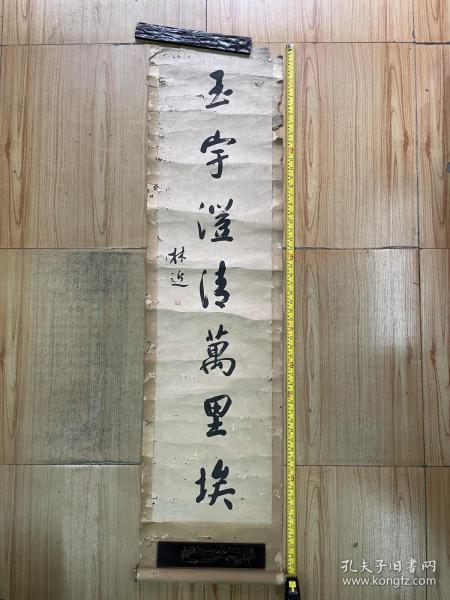 玉宇澄清萬里埃
林近
孔夫子旧书网
www.kongfz.com